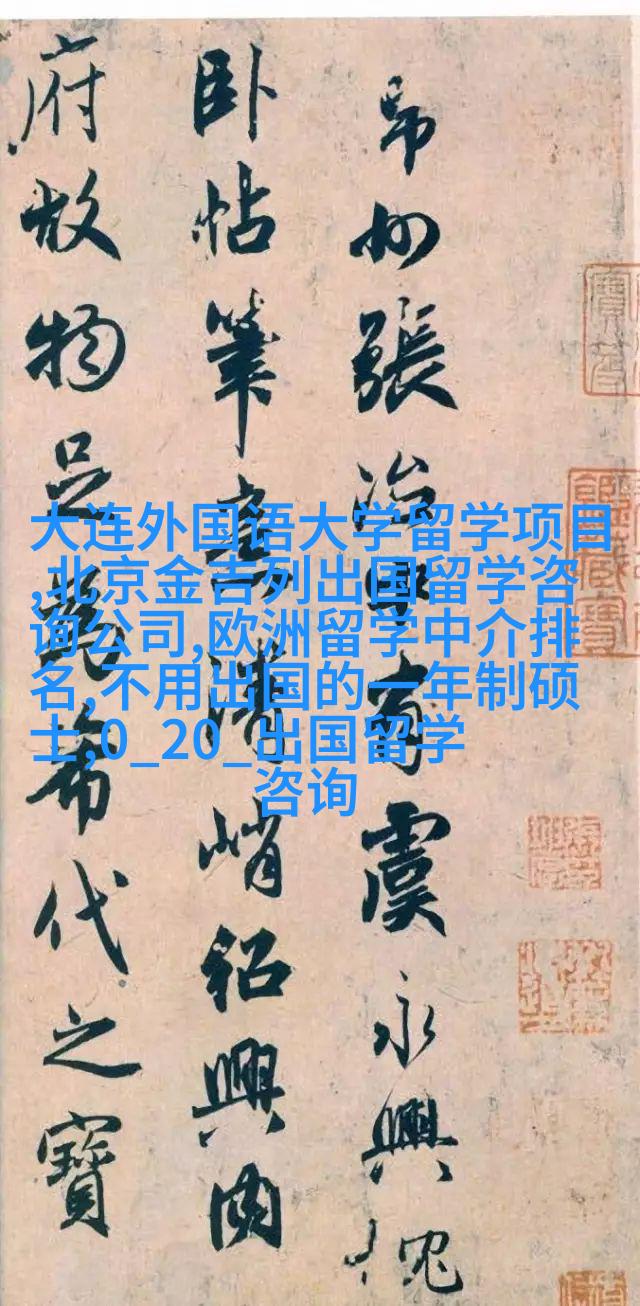 州張治中有虞永興
卧帖筆意峭紹興内
府故物足為希代之寶
大连外国语大学留学项目
,北京金吉列出国留学咨
询公司,欧洲留学中介排
名,不用出国的一年制硕
士,0_20_出国留学
咨询